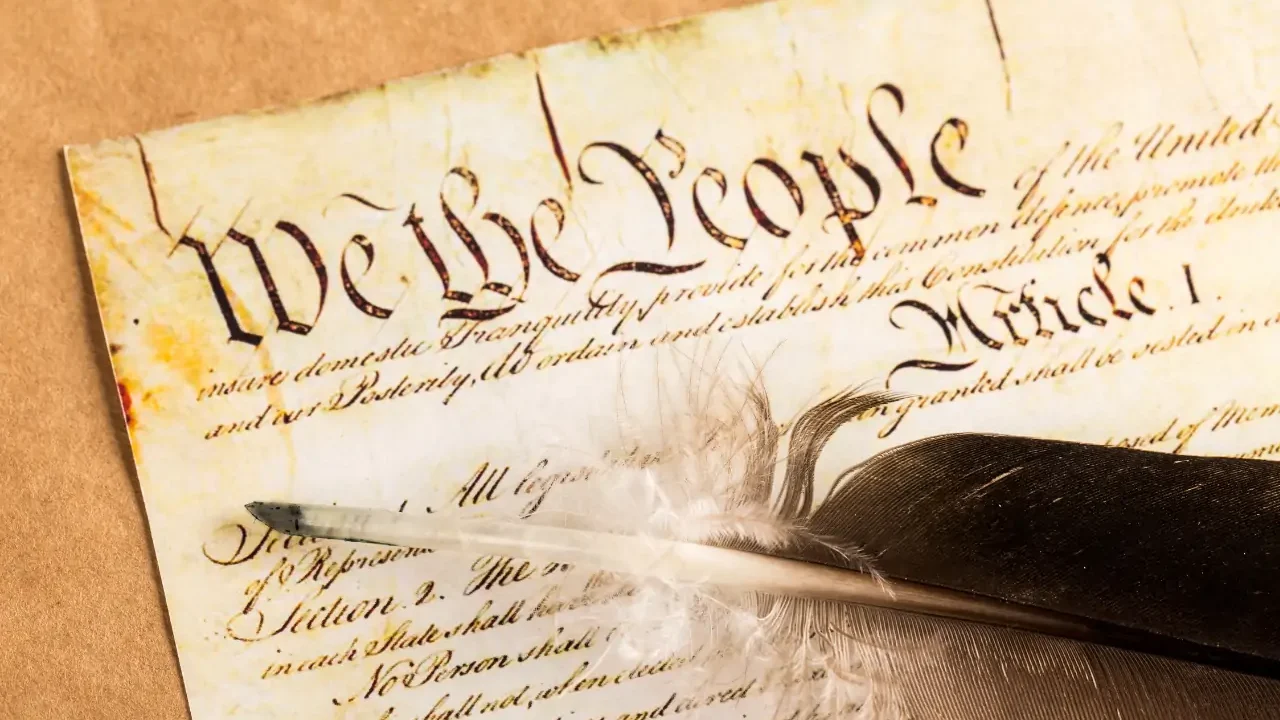 We the People of the United
insure domestic Tranquility, provide for the common defence, promote the
and our Posterity, do ordain and establish this Constitution for the
Article. I.
granted shall be vested in
All
of
Section. 2. The
in each State shall
No Person shall
shall not, when elected
and